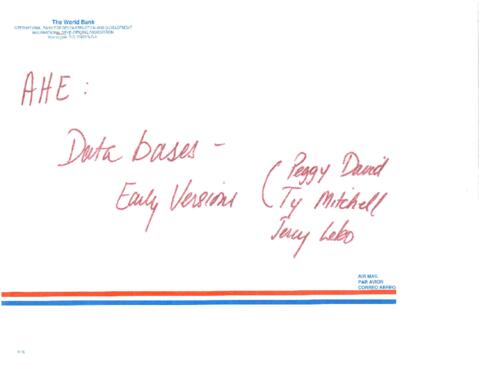 The World Bank
INTERNATIONAL BANK FOR RECONSTRUCTION AND DEVELOPMENT
INTERNATIONAL DEVELOPMENT ASSOCIATION
AHE:
Data bases -
Early Versions
(Peggy David
Ty Mitchell
Jerry Lebo
AIR MAIL
PAR AVION
CORREO AEREO